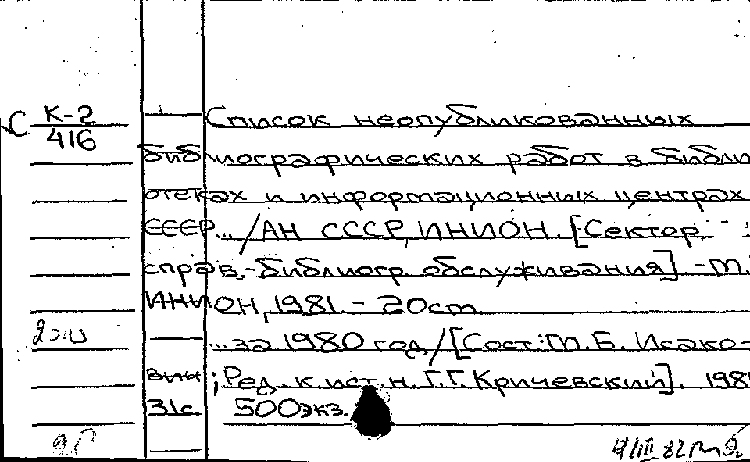 С К-2
416
Список неопубликованных
библиографических работ в библи
отеках и информационных центрах
СССР... /АН СССР, ИНИОН. [Сектор
справ.-библиогр. обслуживания] -М.:
ИНИОН, 1981 - 20см
2 экз
...за 1980 год/[Сост.: М.Б. Исако-
вич; Ред. к.ист.н. Г.Г. Кричевский]. 198
31с 500экз.